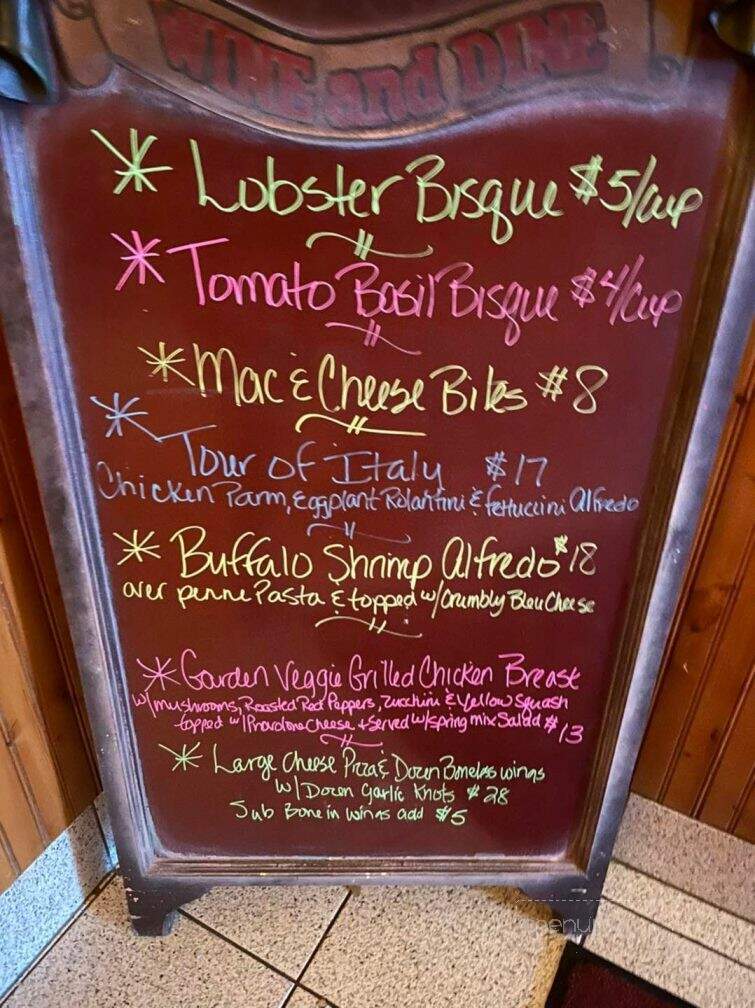 WINE and DINE
* Lobster Bisque $5/cup
* Tomato Basil Bisque $4/cup
* Mac & Cheese Bites $8
* Tour of Italy $17
Chicken Parm, Eggplant Rolantini & fettuccini Alfredo
* Buffalo Shrimp Alfredo $18
over penne Pasta & topped w/Crumbly Bleu Cheese
* Garden Veggie Grilled Chicken Breast
w/mushrooms, Roasted Red Peppers, Zucchini & Yellow Squash
topped w/Provolone Cheese + Served w/spring mix Salad $13
* Large Cheese Pizza & Dozen Boneless wings
w/Dozen Garlic Knots $28
Sub Bone in wings add $5